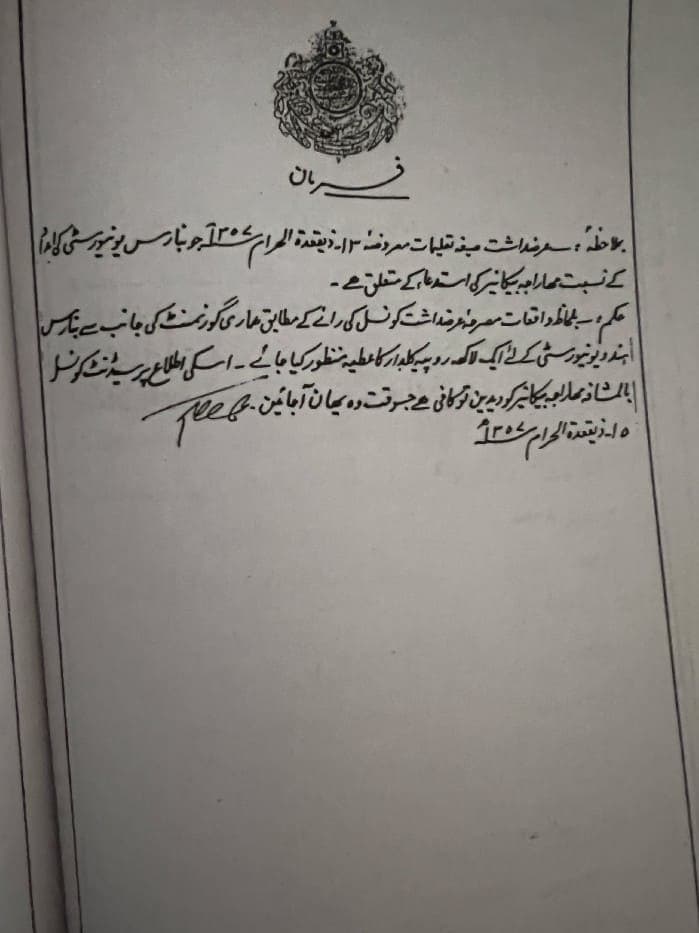 فرمان
بملاحظۂ :۔ عرضداشت صیغہ تعلیمات معروضۂ ۱۳۔ ذیقعدۃ الحرام ۱۳۵۷ھ جو بنارس یونیورسٹی کی امداد
کے نسبت مہاراجہ بیکانیر کی استدعاء کے متعلق ہے ۔
حکم :۔ بلحاظ واقعات مصرحۂ عرضداشت کونسل کی رائے کے مطابق ہماری گورنمنٹ کی جانب سے بنارس
ہندو یونیورسٹی کے لئے ایک لاکھ روپیہ کلدار کا عطیہ منظور کیا جائے ۔ اسکی اطلاع پریسیڈنٹ کونسل
بالمشافہ مہاراجہ بیکانیر کو دیدین تو کافی ہے جسوقت وہ یہان آجائین ۔
۱۵۔ ذیقعدۃ الحرام ۱۳۵۷ھ